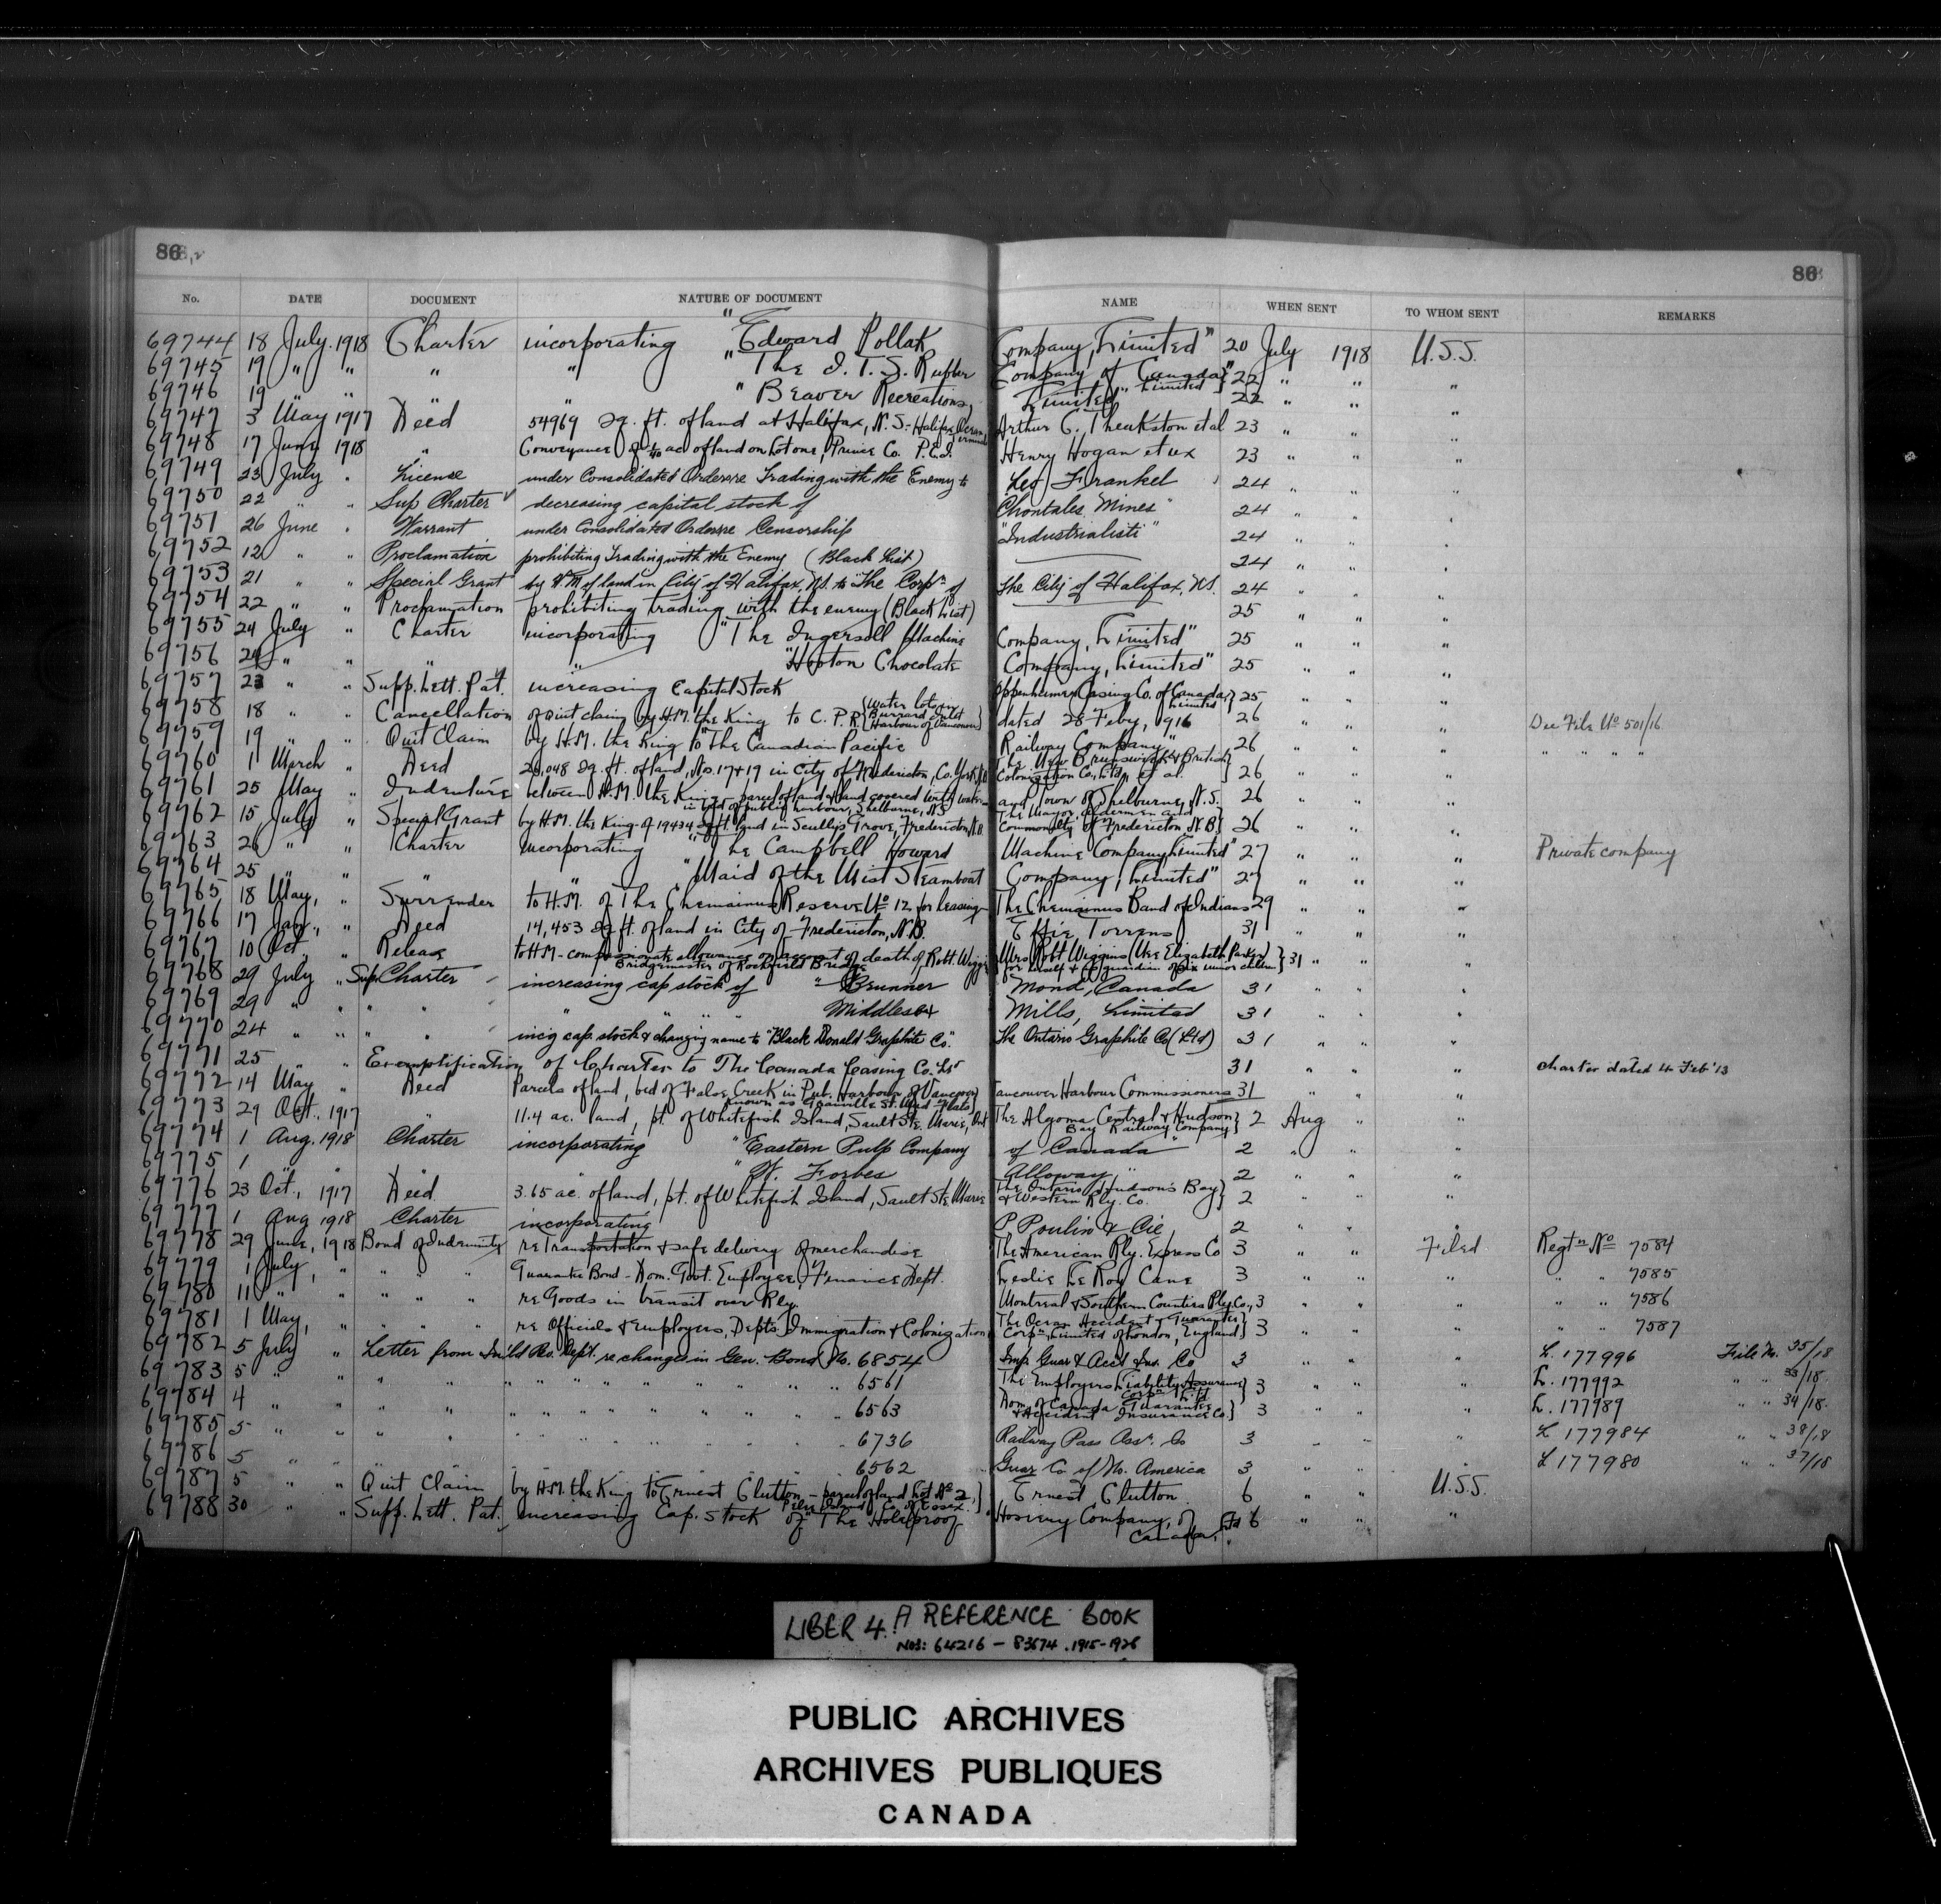 86
86
No. DATE DOCUMENT NATURE OF DOCUMENT NAME WHEN SENT TO WHOM SENT REMARKS
69744 18 July 1918 Charter incorporating "Edward Pollak Company, Limited" 20 July 1918 U.S.S.
69745 19 " " " " "The I.T.S. Rubber Company of Canada, Limited" 22 " " "
69746 19 " " " " "Beaver Recreations, Limited" 22 " " "
69747 3 May 1917 Deed 54969 sq. ft. of land at Halifax, N.S. - Halifax Ocean Terminals Arthur C. Theakston et al 23 " " "
69748 17 June 1918 " Conveyance of ac of land on Lot one, Prince Co. P.E.I. Henry Hogan et ux 23 " " "
69749 23 July " License under Consolidated Orders re Trading with the Enemy to Leo Frankel 24 " " "
69750 22 " " Sup Charter decreasing capital stock of Chontales Mines" 24 " " "
69751 26 June " Warrant under Consolidated Orders re Censorship "Industrialisti" 24 " " "
69752 12 " " Proclamation prohibiting Trading with the Enemy (Black List) 24 " " "
69753 21 " " Special Grant by H.M. of land in City of Halifax, N.S. to "The Corpn of The City of Halifax, N.S. 24 " " "
69754 22 " " Proclamation prohibiting trading with the enemy (Black List) 25 " " "
69755 24 July " Charter incorporating "The Ingersoll Machine Company, Limited" 25 " " "
69756 24 " " " " "Hooton Chocolate Company, Limited" 25 " " "
69757 23 " " Supp. Lett. Pat. increasing Capital Stock Oppenheimer Casing Co. of Canada, Limited 25 " " "
69758 18 " " Cancellation of quit claim by H.M. the King to C.P.R. {Water lots in Burrard Inlet Harbour of Vancouver} dated 28 Feby, 1916 26 " " " See File No 501/16.
69759 19 " " Quit Claim by H.M. the King to "The Canadian Pacific Railway Company" 26 " " " " " " "
69760 1 March " Deed 20,048 sq. ft. of land, Nos. 17 + 19 in City of Fredericton, Co. York N.B. The New Brunswick & British Colonization Co., Ltd., et al. 26 " " "
69761 25 May " Indenture between H.M. the King - parcel of land & land covered with water in bed of public harbour, Shelburne, N.S. and Town of Shelburne, N.S. 26 " " "
69762 15 July " Special Grant by H.M. the King - of 19434 sq ft. land in Scully's Grove, Fredericton N.B. The Mayor, Aldermen and Commonalty of Fredericton, N.B. 26 " " "
69763 26 " " Charter Incorporating "The Campbell Howard Machine Company, Limited" 27 " " " Private company
69764 25 " " " " "Maid of the Mist Steamboat Company, Limited" 27 " " "
69765 18 May, " Surrender to H.M. of The Chemainus Reserve No 12 for leasing The Chemainus Band of Indians 29 " " "
69766 17 Jany., " Deed 14,453 sq. ft. of land in City of Fredericton, N.B. Effie Torrens 31 " " "
69767 10 Oct " Release to H.M. - compassionate allowance on account of death of Robt. Wiggins Bridgemaster of Rockfield Bridge Mrs Robt Wiggins (nee Elizabeth Parker) for herself & as guardian of six minor children 31 " " "
69768 29 July " Sup. Charter increasing cap stock of "Brunner Mond, Canada 31 " " "
69769 29 " " " " " " " Middlesex Mills, Limited 31 " " "
69770 24 " " " " inc'g cap. stock & changing name to "Black Donald Graphite Co." The Ontario Graphite Co (Ltd) 31 " " "
69771 25 " " Exemplification of Charter to The Canada Casing Co. Ld 31 " " " charter dated 4 Feb '13
69772 14 May " Deed Parcels of land, bed of False Creek in Pub. Harbour of Vancouver known as Granville St. Mud Flats Vancouver Harbour Commissioners 31 " " "
69773 29 Oct., 1917 " 11.4 ac. land, pt. of Whitefish Island, Sault Ste. Marie, Ont The Algoma Central & Hudson Bay Railway Company 2 Aug " "
69774 1 Aug. 1918 Charter incorporating "Eastern Pulp Company of Canada" 2 " " "
69775 1 " " " " "W. Forbes Alloway" 2 " " "
69776 23 Oct., 1917 Deed 3.65 ac. of land, pt. of Whitefish Island, Sault Ste. Marie The Ontario, Hudson's Bay & Western Rly. Co. 2 " " "
69777 1 Aug 1918 Charter incorporating P. Poulin & Cie 2 " " "
69778 29 June, 1918 Bond of Indemnity re Transportation & safe delivery of merchandise The American Rly. Express Co 3 " " Filed Regtn No 7584
69779 1 July, " " " " Guarantee Bond - Dom. Govt. Employee, Finance Dept. Leslie Le Roy Cane 3 " " " " " 7585
69780 11 " " " " " re Goods in transit over Rly. Montreal & Southern Counties Rly. Co., 3 " " " " " 7586
69781 1 May, " " " " re Officials & Employers, Depts. Immigration & Colonization The Ocean Accident & Guarantee Corpn Limited of London, England 3 " " " " " 7587
69782 5 July " Letter from Inld Rev. Dept. re changes in Gen. Bond No. 6854 Imp. Guar & Acc't Ins. Co 3 " " " L. 177996 File No. 35/18
69783 5 " " " " " " " " " 6561 The Employers Liability Assurance Corpn Ltd 3 " " " L. 177992 " " 33/18.
69784 4 " " " " " " " " " 6563 Dom. of Canada Guarantee & Accident Insurance Co. 3 " " " L. 177989 " " 34/18.
69785 5 " " " " " " " " " 6736 Railway Pass Assn. Co 3 " " " L 177984 " " 38/18
69786 5 " " " " " " " " " 6562 Guar Co of N. America 3 " " " L 177980 " " 37/18
69787 5 " " Quit Claim by H.M. the King to Ernest Clutton - parcel of land Lot No 2, Pelee Island, Co. of Essex. Ernest Clutton 6 " " U.S.S.
69788 30 " " Supp. Lett. Pat. Increasing Cap. Stock of "The Holeproof Hosiery Company, of Canada, Ltd 6 " " "
LIBER 4. A REFERENCE BOOK
NOS: 64216 - 83674. 1915-1928
PUBLIC ARCHIVES
ARCHIVES PUBLIQUES
CANADA